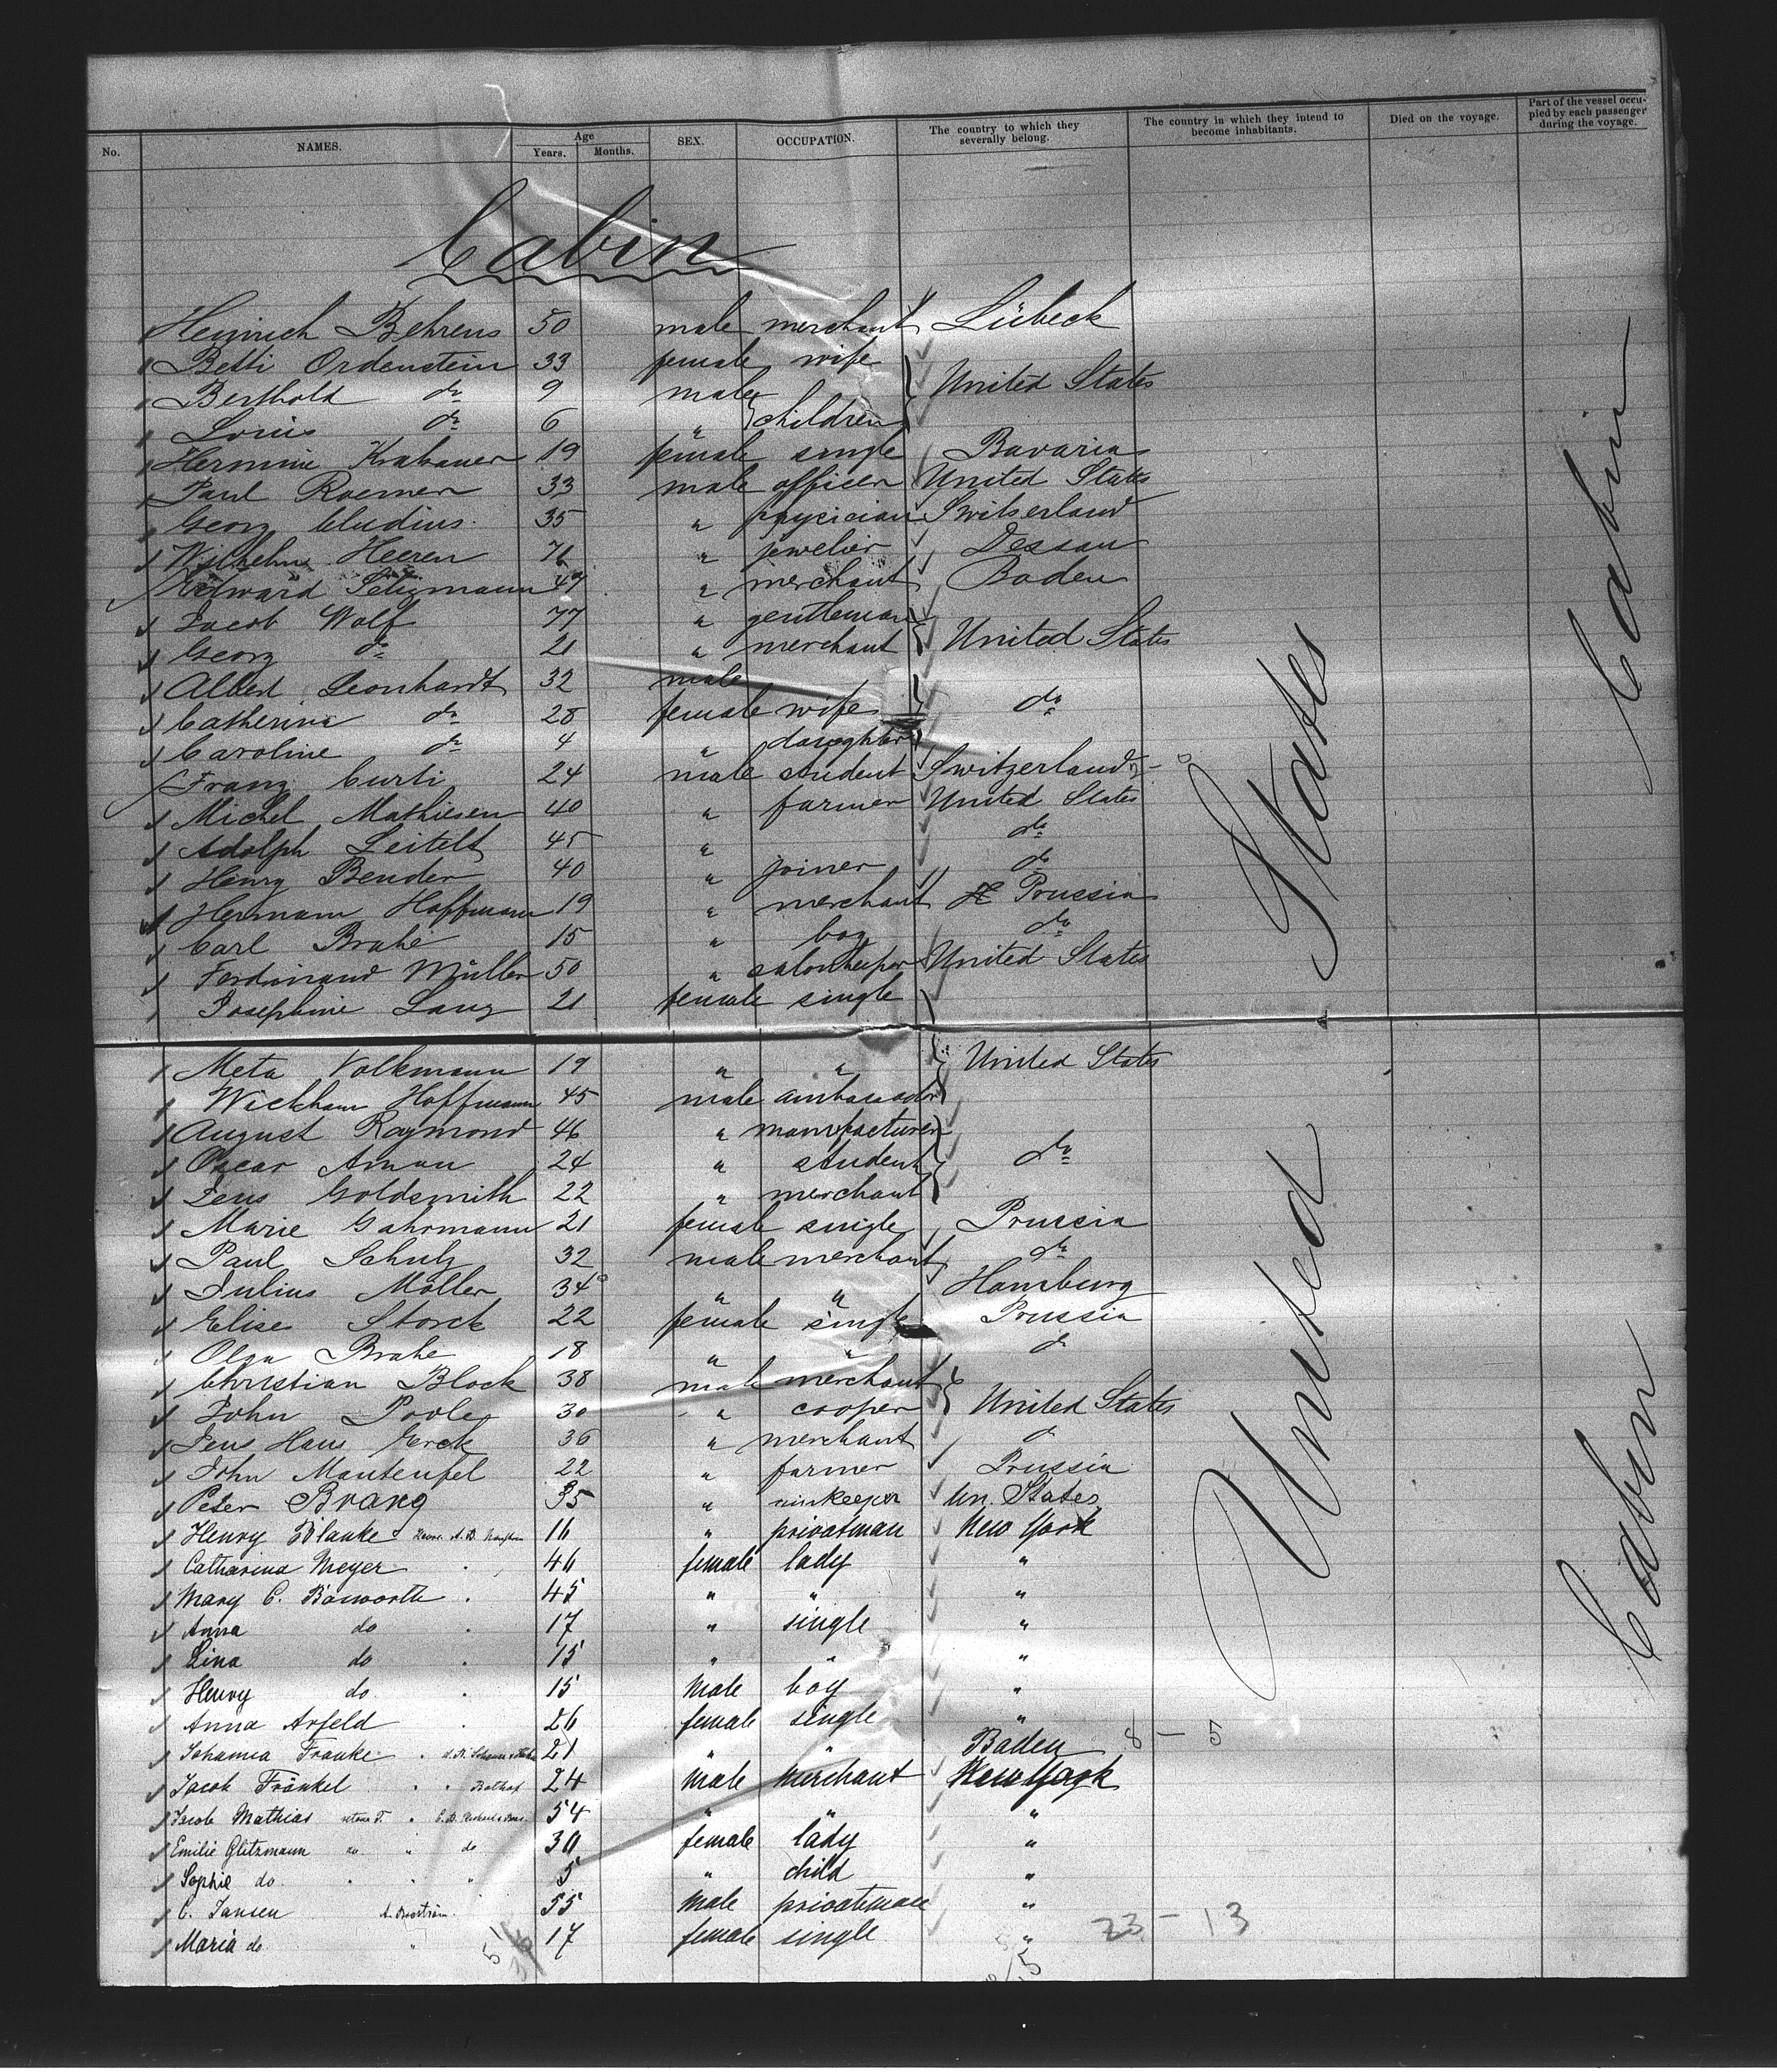 No. NAMES. Age Years. Months. SEX. OCCUPATION. The country to which they severally belong. The country in which they intend to become inhabitants. Died on the voyage. Part of the vessel occupied by each passenger during the voyage.
Cabin
Heinrich Behrens 50 male merchant Lübeck
Betti Ordenstein 33 female wife
Berthold do 9 male children United States
Louis do 6 "
Hermine Krabauer 19 female single Bavaria
Paul Roemer 33 male officer United States
Georg Cludius 35 " psycician Switserland
Wilhelm Heeren 76 " jewelier Dessau
Edward 47 " merchant Baden
Jacob Wolf 77 " gentleman
Georg do 21 " merchant United States
Albert Leonhardt 32 male
Catherina do 28 female wife do
Caroline do 4 " daughter
Franz Curti 24 male student Switzerland
Michel Mathiesen 40 " farmer United States
Adolph Leitelt 45 " do
Henry Bender 40 " joiner do
Hermann Hoffmann 19 " merchant Prussia
Carl Brahe 15 " boy do
Ferdinand Müller 50 " salonkeeper United States
Josephine Lang 21 female single
Meta Volkmann 19 " " United States
Wickham Hoffmann 45 male ambassador
August Raymond 46 " manufacturer
Oscar Aman 24 " student do
Jens Goldsmith 22 " merchant
Marie Gahrmann 21 female single Prussia
Paul Schulz 32 male merchant do
Julius Möller 34 " " Hamburg
Elise Storck 22 female single Prussia
Olga Brahe 18 " " do
Christian Block 38 male merchant
John Poole 30 " cooper United States
Jens Hans 36 " merchant do
John Manteufel 22 " farmer Prussia
Peter Brang 35 " innkeeper Un. States
Henry Blanke 16 " privatman New York
Catharina Meyer 46 female lady "
Mary C. Bosworth 45 " " "
Anna do 17 " single "
Lina do 15 " " "
Henry do 15 male boy "
Anna Arfeld 26 female single "
Johanna Franke 21 " " Baden 8 - 5
Jacob Fränkel 24 male merchant New York
Jacob Mathias 54 " " "
Emilie Glitzmann do 30 female lady "
Sophie do 5 " child "
C. Jansen 55 male privateman "
Maria do 17 female single " 23 - 13
United States
Cabin
Cabin